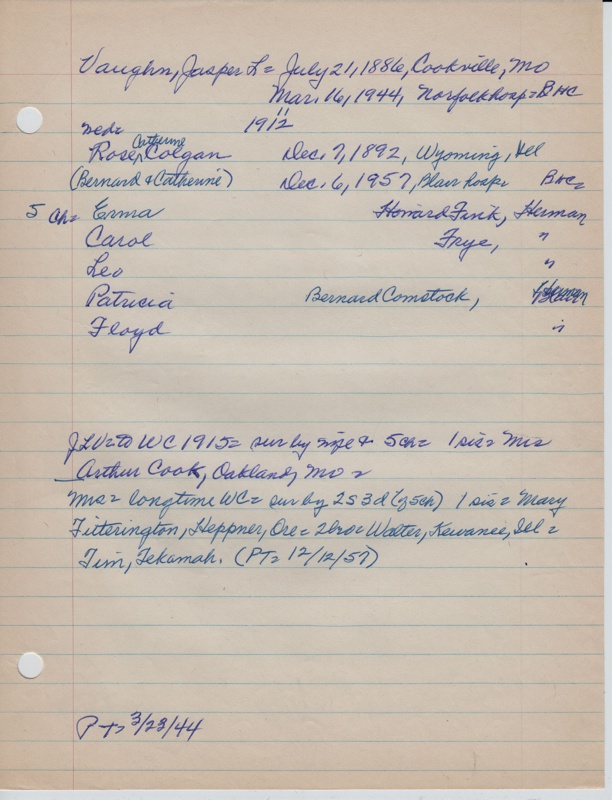 Vaughn, Jasper L = July 21, 1886, Cookville, Mo
Mar. 16, 1944, Norfolk Hosp = BHC
med = 1912
Catherine
Rose Colgan Dec. 7, 1892, Wyoming, Ill
(Bernard & Catherine) Dec. 6, 1957, Blair Hosp = BHC =
5 ch = Erma Howard Fink, Herman
Carol Frye, "
Leo "
Patricia Bernard Comstock, Herman
Floyd "
JLV = to WC 1915 = sur by wife & 5 ch = 1 sis = Mrs
Arthur Cook, Oakland, Mo =
Mrs = longtime WC = sur by 2s 3d (of 5ch) 1 sis = Mary
Titterington, Heppner, Ore = 2 bro = Walter, Kewanee, Ill =
Tim, Tekamah. (PT = 12/12/57)
PT = 3/23/44